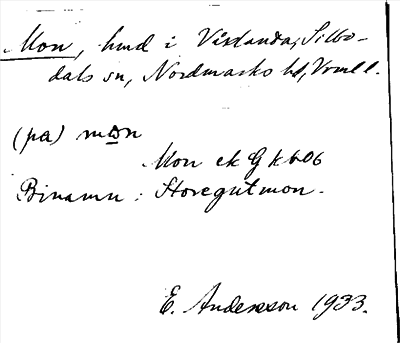 Mon, hmd i Västanda, Silbo-
dals sn, Nordmarks hd, Vrml.
(pa) mon
Mon ek G k b06
Binamn: Storegutmon.
E. Andersson 1933.